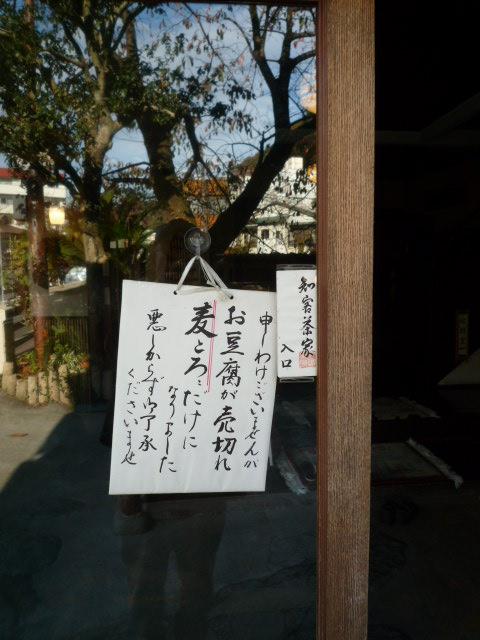 知客茶家
入口
申しわけございませんが
お豆腐が売切れ
麦とろだけに
なりました
悪しからず御了承
くださいませ